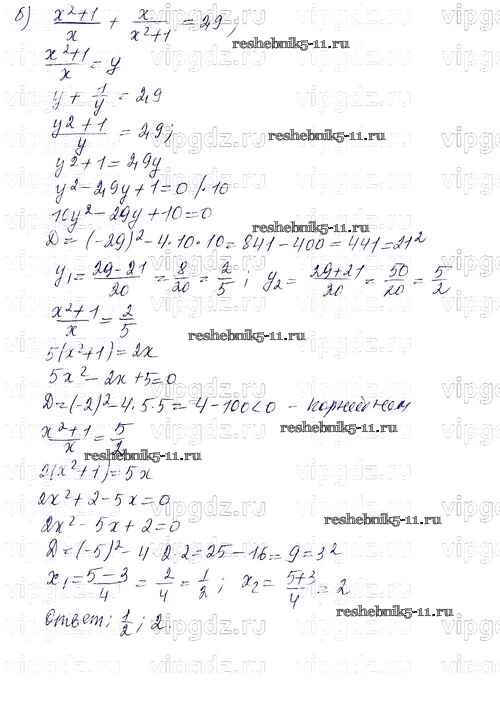 б) (x²+1)/x + x/(x²+1) = 2,9;
reshebnik5-11.ru
(x²+1)/x = y
y + 1/y = 2,9
(y²+1)/y = 2,9;
reshebnik5-11.ru
y²+1 = 2,9y
y² - 2,9y + 1 = 0 /·10
10y² - 29y + 10 = 0
reshebnik5-11.ru
D = (-29)² - 4·10·10 = 841 - 400 = 441 = 21²
y₁ = (29-21)/20 = 8/20 = 2/5; y₂ = (29+21)/20 = 50/20 = 5/2
(x²+1)/x = 2/5
reshebnik5-11.ru
5(x²+1) = 2x
5x² - 2x + 5 = 0
D = (-2)² - 4·5·5 = 4 - 100 < 0 - корней нет
(x²+1)/x = 5/2
reshebnik5-11.ru
reshebnik5-11.ru
2(x²+1) = 5x
2x² + 2 - 5x = 0
2x² - 5x + 2 = 0
reshebnik5-11.ru
D = (-5)² - 4·2·2 = 25 - 16 = 9 = 3²
x₁ = (5-3)/4 = 2/4 = 1/2; x₂ = (5+3)/4 = 2
Ответ: 1/2; 2
reshebnik5-11.ru
vipgdz.ru